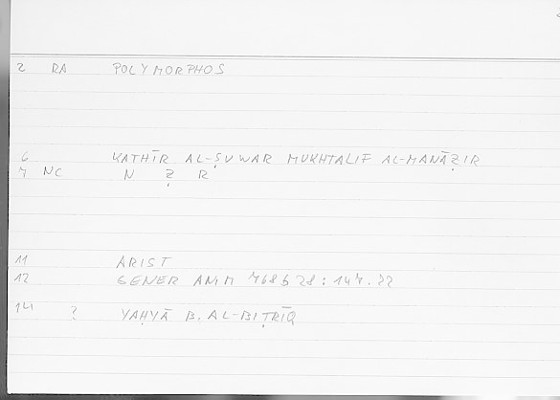 2 RA POLYMORPHOS
6 KATHĪR AL-ṢUWAR MUKHTALIF AL-MANĀẒIR
7 NC N Ẓ R
11 ARIST
12 GENER ANIM 768b28 : 147.22
14 ? YAḤYĀ B. AL-BIṬRĪQ